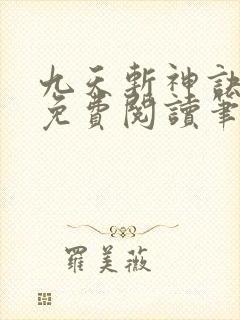 九天斬神訣
免費閱讀筆
羅美薇